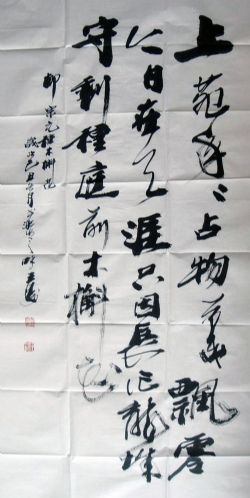 上苑年〻占物華飄零
今日在天涯只因長作龍城
守剩種庭前木槲花
柳宗元種木槲花
歲次己丑